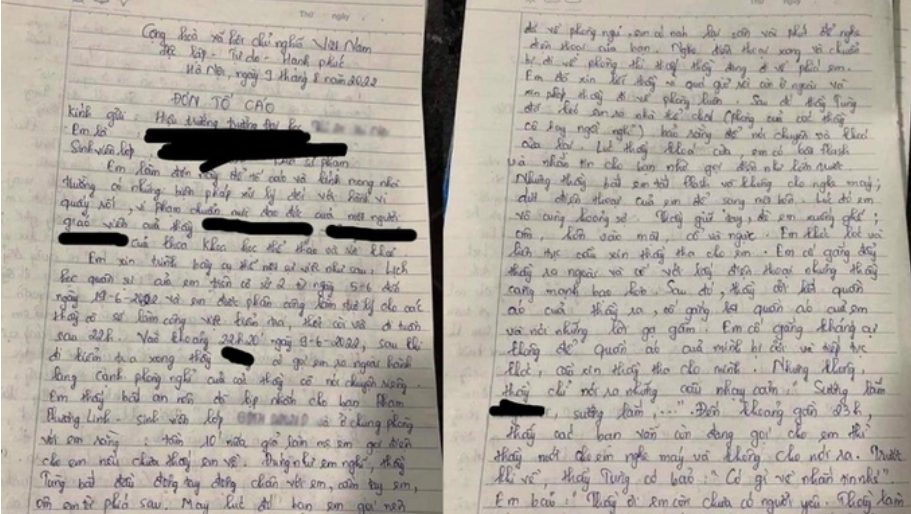 Thứ ngày
Cộng hoà xã hội chủ nghĩa Việt Nam
Độc lập - Tự do - Hạnh phúc
Hà Nội, ngày 9 tháng 8 năm 2022
ĐƠN TỐ CÁO
Kính gửi : Hiệu trưởng trường Đại học
Em là
Sinh viên lớp phạm
Em làm đơn này để tố cáo và kính mong nhà
trường có những biện pháp xử lý đối với hành vi
quấy rối, vi phạm chuẩn mực đạo đức của một người
giáo viên của thầy
của khoa Khoa học thể thao và
Em xin trình bày cụ thể nội sự việc như sau: Lịch
học quân sự của em trên cơ sở 2 từ ngày 5-6 đến
ngày 19-6-2022 và em được phân công làm cho các
thầy cô sẽ làm công việc kiểm tra, thời cái và đi tuần
sau 22h. Vào khoảng 22h20' ngày 9-6-2022, sau khi
đi kiểm tra xong thầy có gọi em ra ngoài hành
lang cạnh phòng nghỉ của các thầy cô nói chuyện riêng.
Em thấy bất an nên đã lập nhắn cho bạn Phạm
Phương Linh - sinh viên lớp và ở chung phòng
với em rằng : tầm 10' nữa giả làm mẹ em gọi điện
cho em nếu chưa thấy em về. Đúng như em nghĩ, thầy
Tùng bắt đầu động tay động chân với em, cầm tay em,
ôm em từ phía sau. May lúc đó bạn em gọi nên
Thứ ngày
đó về phòng ngủ, em có nói lại còn vài phút để nghe
điện thoại của bạn. Nghe điện thoại xong và chuẩn
bị đi về phòng thì thấy thầy đang đi về phía em.
Em đã xin lỗi thầy vì quá giờ rồi còn ở ngoài và
xin phép thầy đi về phòng luôn. Sau đó thầy Tùng
đã kéo em ra nhà thể chất (phòng của các thầy
cô hay ngồi nghỉ) bảo rằng để nói chuyện và khoá
cửa lại. Lúc thầy khoá cửa, em có bật flash
và nhắn tin cho bạn nhờ gọi điện như lần trước
Nhưng thầy bắt em tắt flash và không cho nghe máy;
dứt điện thoại của em để sang một bên. Lúc đó em
vô cùng hoảng sợ. Thầy giữ tay, đè em xuống ghế;
ôm, hôn vào môi, cổ và ngực. Em khóc lóc và
liên tục cầu xin thầy tha cho em. Em cố gắng đẩy
thầy ra ngoài và cố với lấy điện thoại nhưng thầy
càng mạnh bạo hơn. Sau đó, thầy cởi quần
áo của thầy ra, cố gắng quần áo của em
và nói những lời gạ gẫm. Em cố gắng kháng cự
không để quần áo của mình bị cởi và tiếp tục
khóc, cầu xin thầy tha cho mình. Nhưng không,
thầy chỉ nói ra những câu nhạy cảm: "Sướng lắm
, sướng lắm,...". Đến khoảng gần 23h,
thấy các bạn vẫn còn đang gọi cho em thì
thầy mới cho em nghe máy và không cho nói ra. Trước
khi về, thầy Tùng có bảo: "Có gì về nhắn tin nhé".
Em bảo: "Thầy ơi em còn chưa có người yêu. Thầy làm